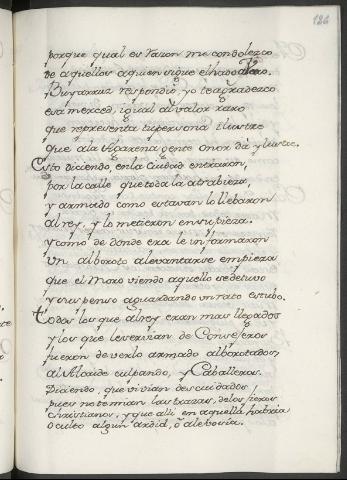 126
porque qual es razon me conduelezco
de aquellos a quien sigue el hado
Buyarraz respondio, yo te agradezco
esa merced, igual al valor raro
que representa tu persona ilustre
que a la Agarena gente onor da y lustre.
Esto diciendo, en la Ciudad entraron,
por la calle que toda la atrabieza,
y armado como estavan lo llebaron
al rey, y lo metieron en su pieza.
y como de donde era le informaron
un alboroto a levantarse empieza
que el Moro viendo aquello se detuvo
y suspenso aguardando un rato estubo.
Todos los que al rey eran mas llegados
y los que le servian de Consejeros
fueron de verlo armado alborotados,
al Alcaide culpando, y Caballeros.
Diciendo, que vivian descuidados
pues no temian las trazas, de los fieros
christianos, y que alli en aquella habria
oculto algun ardid, ò alebosia.